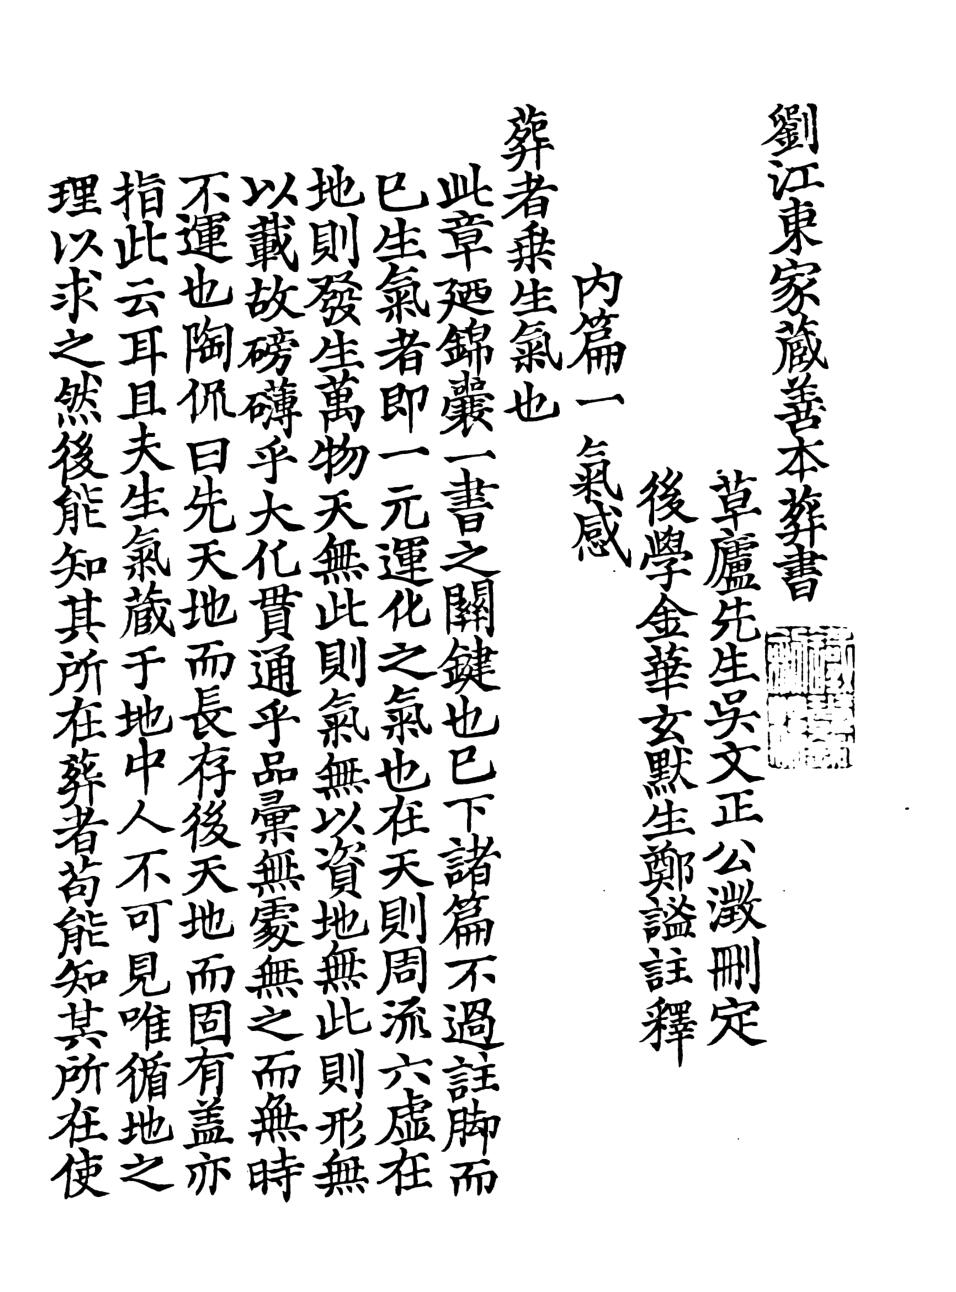 劉江東家藏善本葬書
草廬先生吳文正公澂刪定
後學金華玄默生鄭謐註釋
内篇一 氣感
葬者乗生氣也
此章廼錦囊一書之關鍵也巳下諸篇不過註脚而
巳生氣者即一元運化之氣也在天則周流六虚在
地則發生萬物天無此則氣無以資地無此則形無
以載故磅礴乎大化貫通乎品彙無處無之而無時
不運也陶侃曰先天地而長存後天地而固有盖亦
指此云耳且夫生氣藏于地中人不可見唯循地之
理以求之然後能知其所在葬者苟能知其所在使